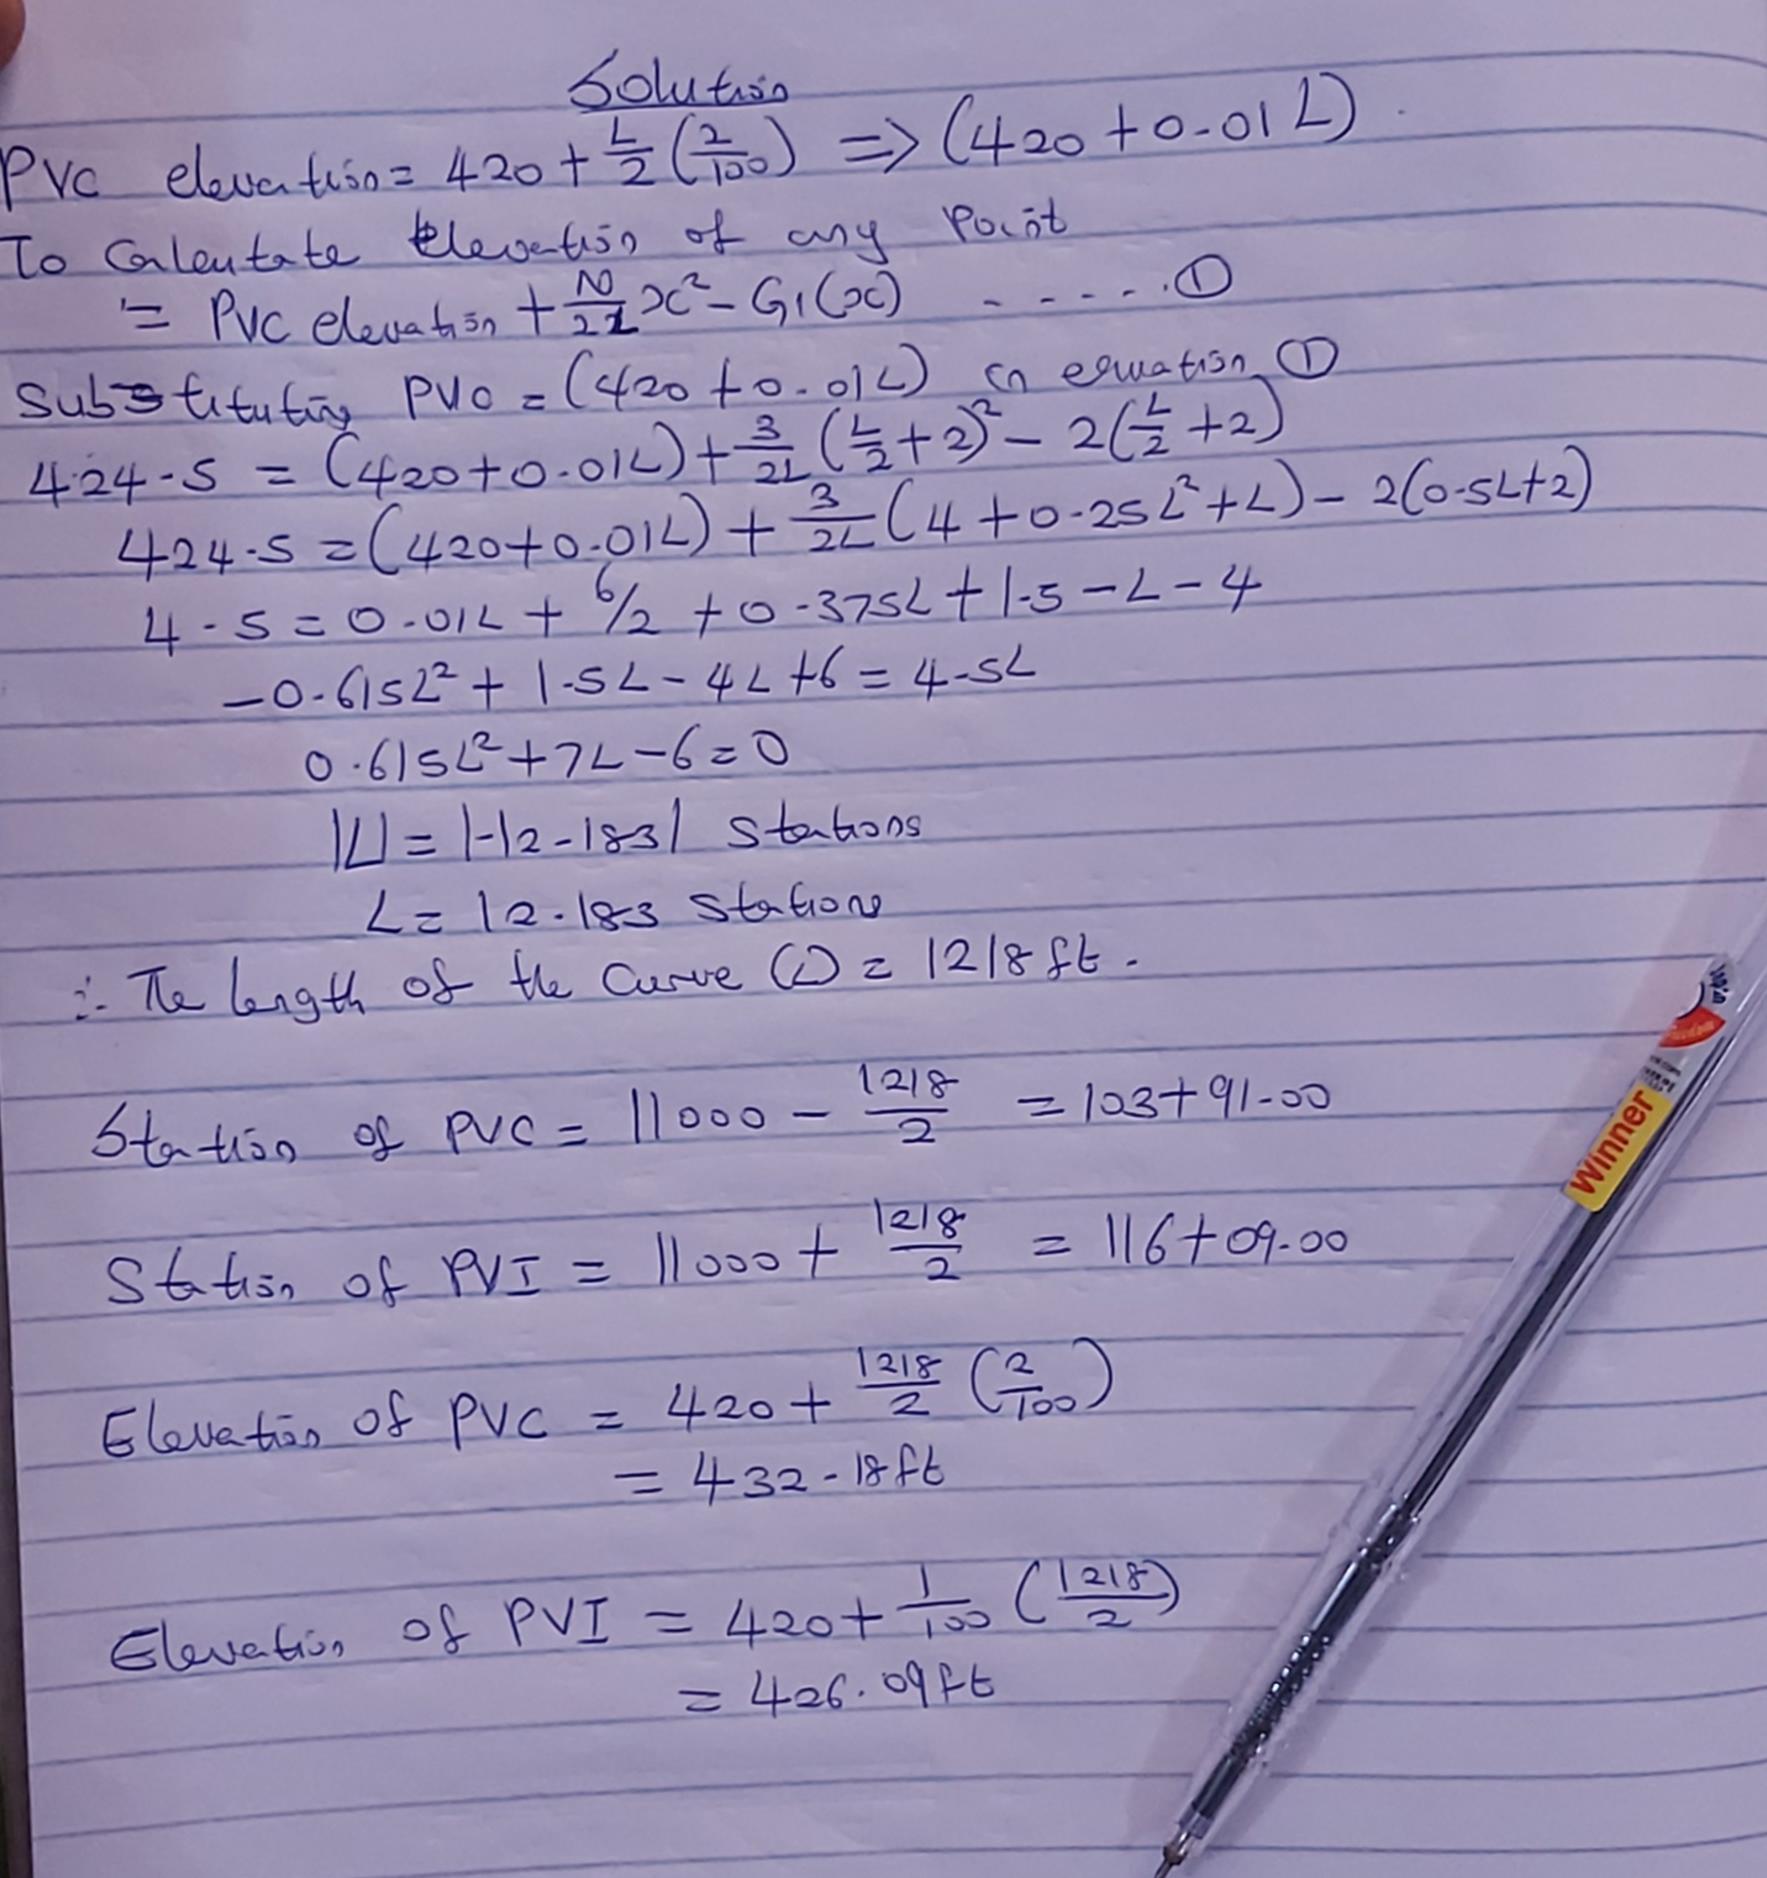 Solution
PVC elevation = 420 + L/2 (2/100) => (420 + 0.01 L).
To Calculate Elevation of any Point
= PVC elevation + N/2L x² - G1(x) ...... ①
Substituting PVC = (420 + 0.01L) in equation ①
424.5 = (420 + 0.01L) + 3/2L (L/2 + 2)² - 2(L/2 + 2)
424.5 = (420 + 0.01L) + 3/2L (4 + 0.25L² + L) - 2(0.5L + 2)
4.5 = 0.01L + 6/L + 0.375L + 1.5 - L - 4
-0.615L² + 1.5L - 4L + 6 = 4.5L
0.615L² + 7L - 6 = 0
|L| = |-12.183| Stations
L = 12.183 Stations
∴ The length of the Curve (L) = 1218 ft.
Station of PVC = 11000 - 1218/2 = 103+91.00
Station of PVI = 11000 + 1218/2 = 116+09.00
Elevation of PVC = 420 + 1218/2 (2/100)
= 432.18 ft
Elevation of PVI = 420 + 1/100 (1218/2)
= 426.09 ft
Winner